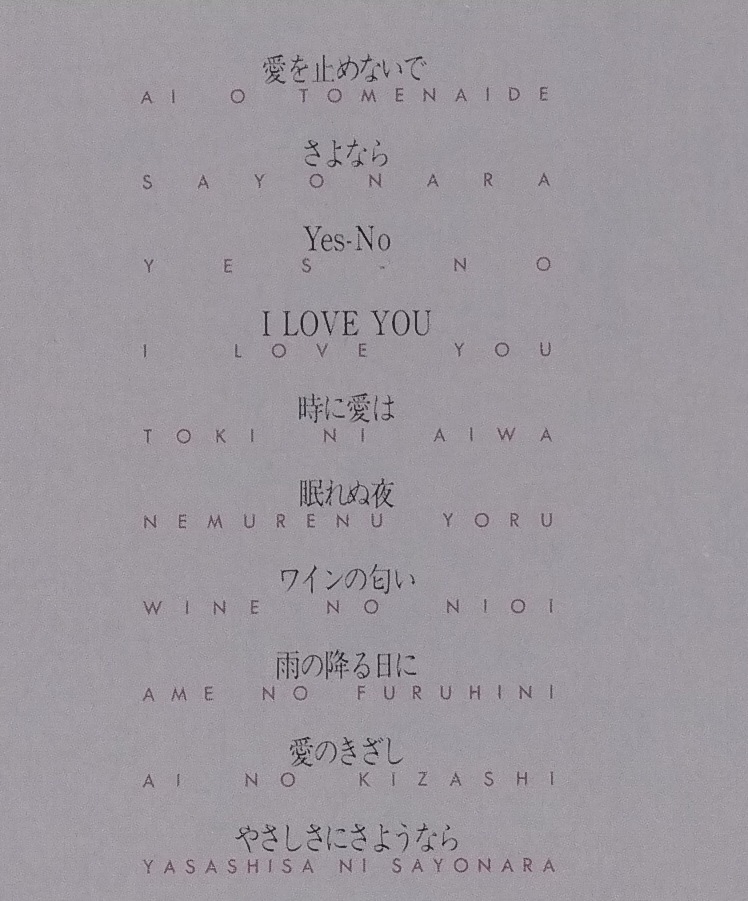 愛を止めないで
AI O TOMENAIDE
さよなら
SAYONARA
Yes-No
YES-NO
I LOVE YOU
I LOVE YOU
時に愛は
TOKI NI AIWA
眠れぬ夜
NEMURENU YORU
ワインの匂い
WINE NO NIOI
雨の降る日に
AME NO FURUHINI
愛のきざし
AI NO KIZASHI
やさしさにさようなら
YASASHISA NI SAYONARA